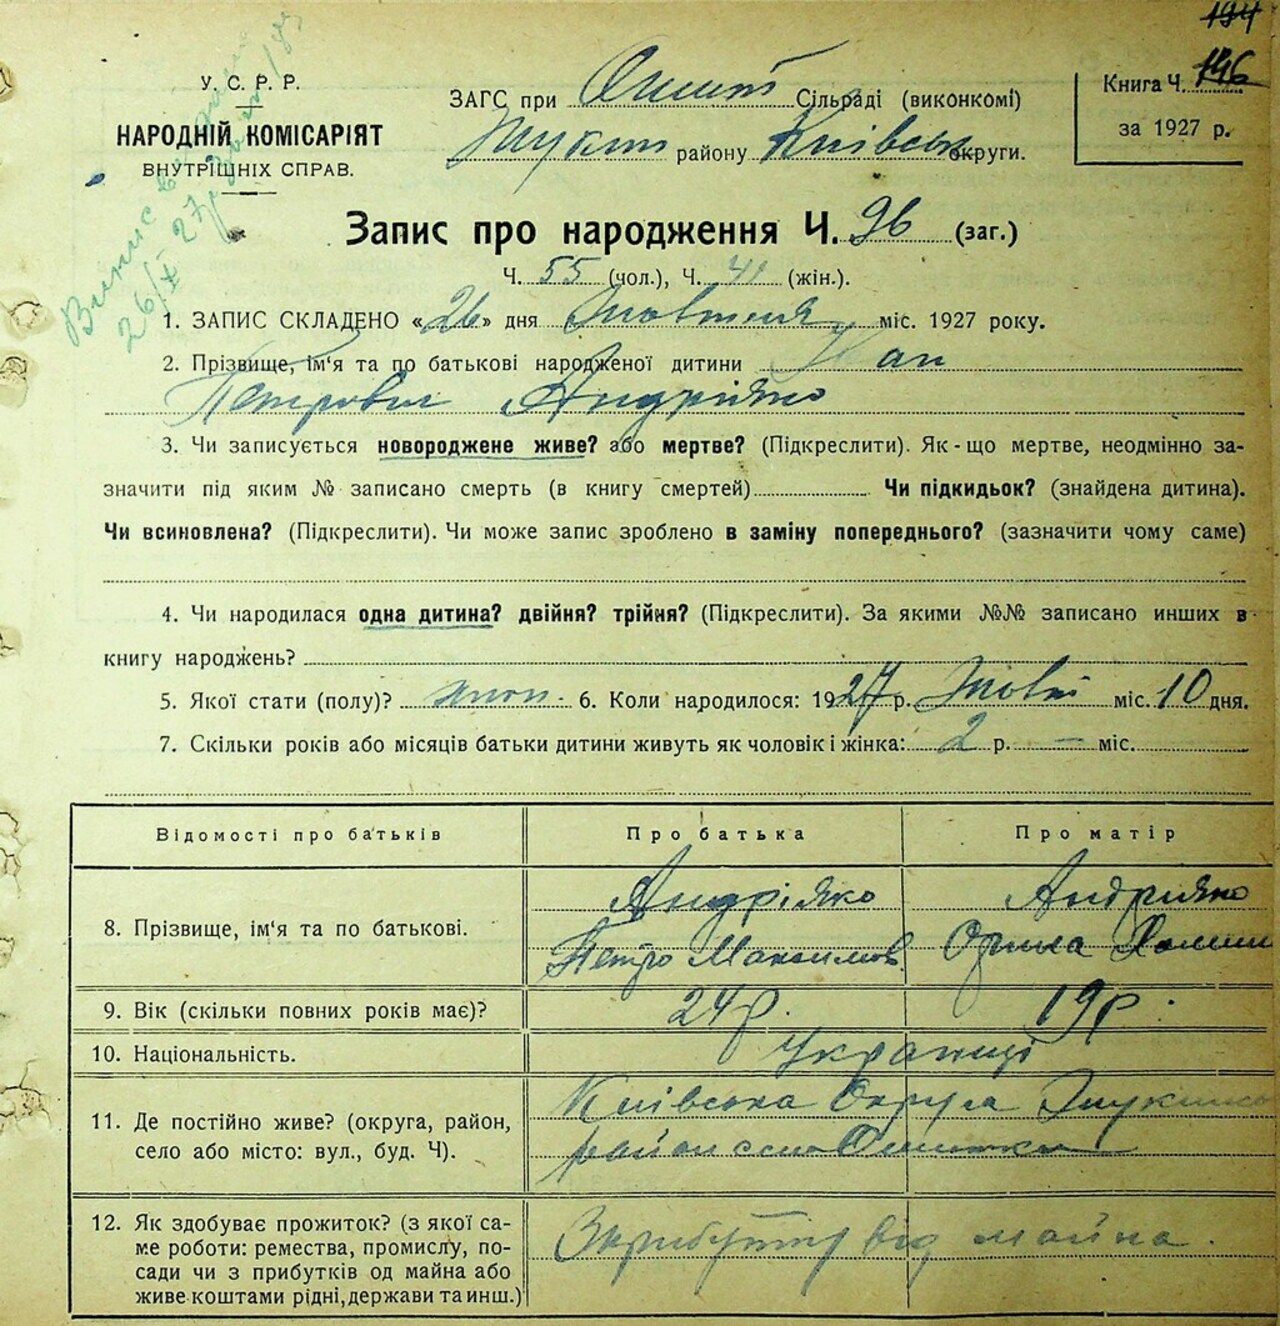 194
У. С. Р. Р.
НАРОДНІЙ КОМІСАРІЯТ
ВНУТРІШНІХ СПРАВ.
ЗАГС при Сільраді (виконкомі)
району Київськ округи.
Книга Ч. 146
за 1927 р.
Запис про народження Ч. 96 (заг.)
Ч. 55 (чол.), Ч. 41 (жін.).
1. ЗАПИС СКЛАДЕНО «26» дня Жовтня міс. 1927 року.
2. Прізвище, ім'я та по батькові народженої дитини Іван
Петрович Андріяко
3. Чи записується новороджене живе? або мертве? (Підкреслити). Як-що мертве, неодмінно за-
значити під яким № записано смерть (в книгу смертей) Чи підкидьок? (знайдена дитина).
Чи всиновлена? (Підкреслити). Чи може запис зроблено в заміну попереднього? (зазначити чому саме)
4. Чи народилася одна дитина? двійня? трійня? (Підкреслити). За якими №№ записано инших в
книгу народжень?
5. Якої стати (полу)? 6. Коли народилося: 1927 р. Жовт міс. 10 дня.
7. Скільки років або місяців батьки дитини живуть як чоловік і жінка: 2 р. — міс.
Відомості про батьків
Про батька
Про матір
8. Прізвище, ім'я та по батькові.
Андріяко
Петро Максимов.
Андріяко
Орина
9. Вік (скільки повних років має)?
24 р.
19 р.
10. Національність.
Українці
11. Де постійно живе? (округа, район,
село або місто: вул., буд. Ч).
Київська Округа
район село
12. Як здобуває прожиток? (з якої са-
ме роботи: ремества, промислу, по-
сади чи з прибутків од майна або
живе коштами рідні, держави та инш.)
від майна.